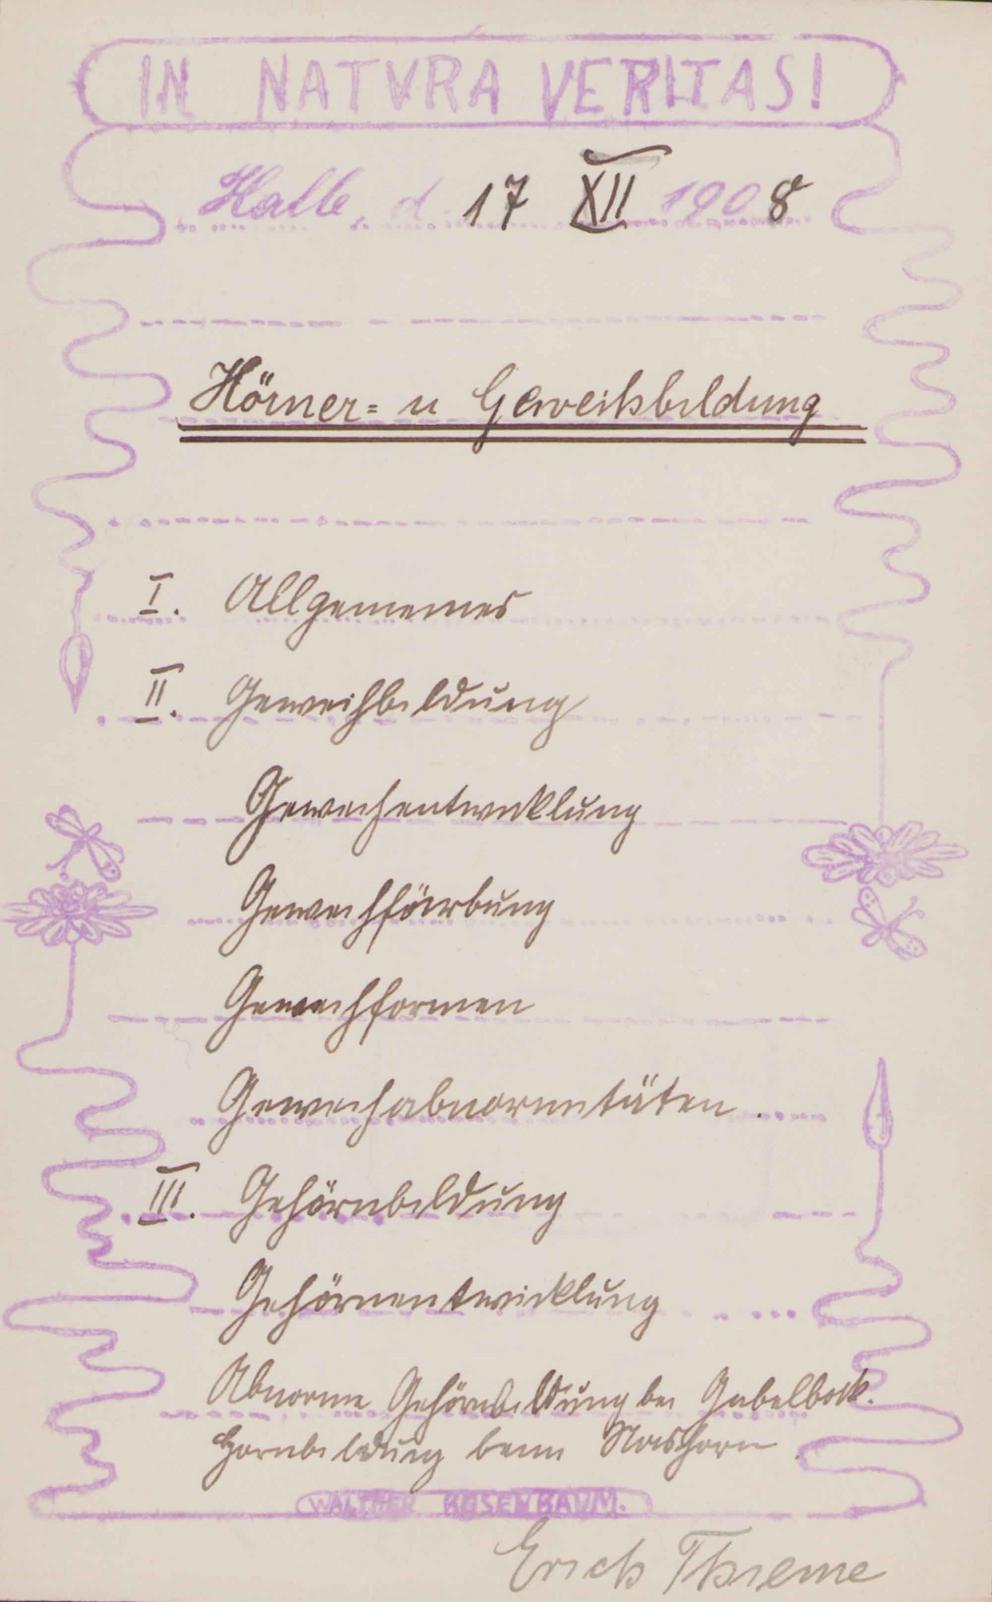 IN NATVRA VERITAS!
Halle, d. 17 XII 1908
Hörner= u Geweihbildung
I. Allgemeines
II. Geweihbildung
Geweihentwicklung
Geweihfärbung
Geweihformen
Geweihabnormitäten.
III. Gehörnbildung
Gehörnentwicklung
Abnorme Gehörnbildung bei Gabelbock.
Hornbildung beim Nashorn
WALTHER ROSENBAUM.
Erich Thieme